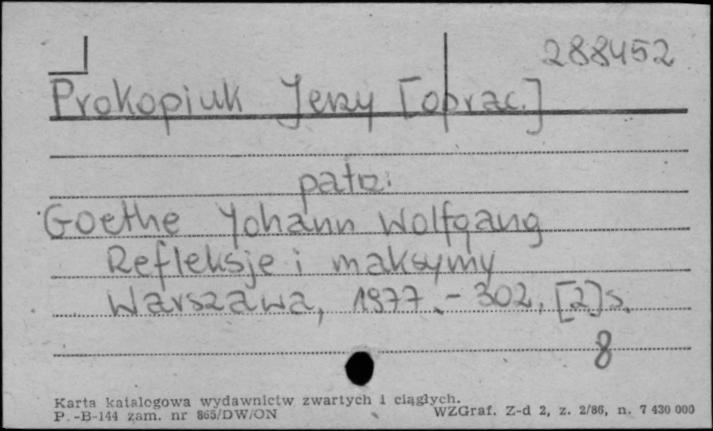 288452
Prokopiuk Jerzy [oprac.]
patrz:
Goethe Johann Wolfgang
Refleksje i maksymy
Warszawa, 1977. - 302, [2] s.
8
Karta katalogowa wydawnictw zwartych i ciągłych.
P.-B-144 zam. nr 865/DW/ON WZGraf. Z-d 2, z. 2/86, n. 7 430 000